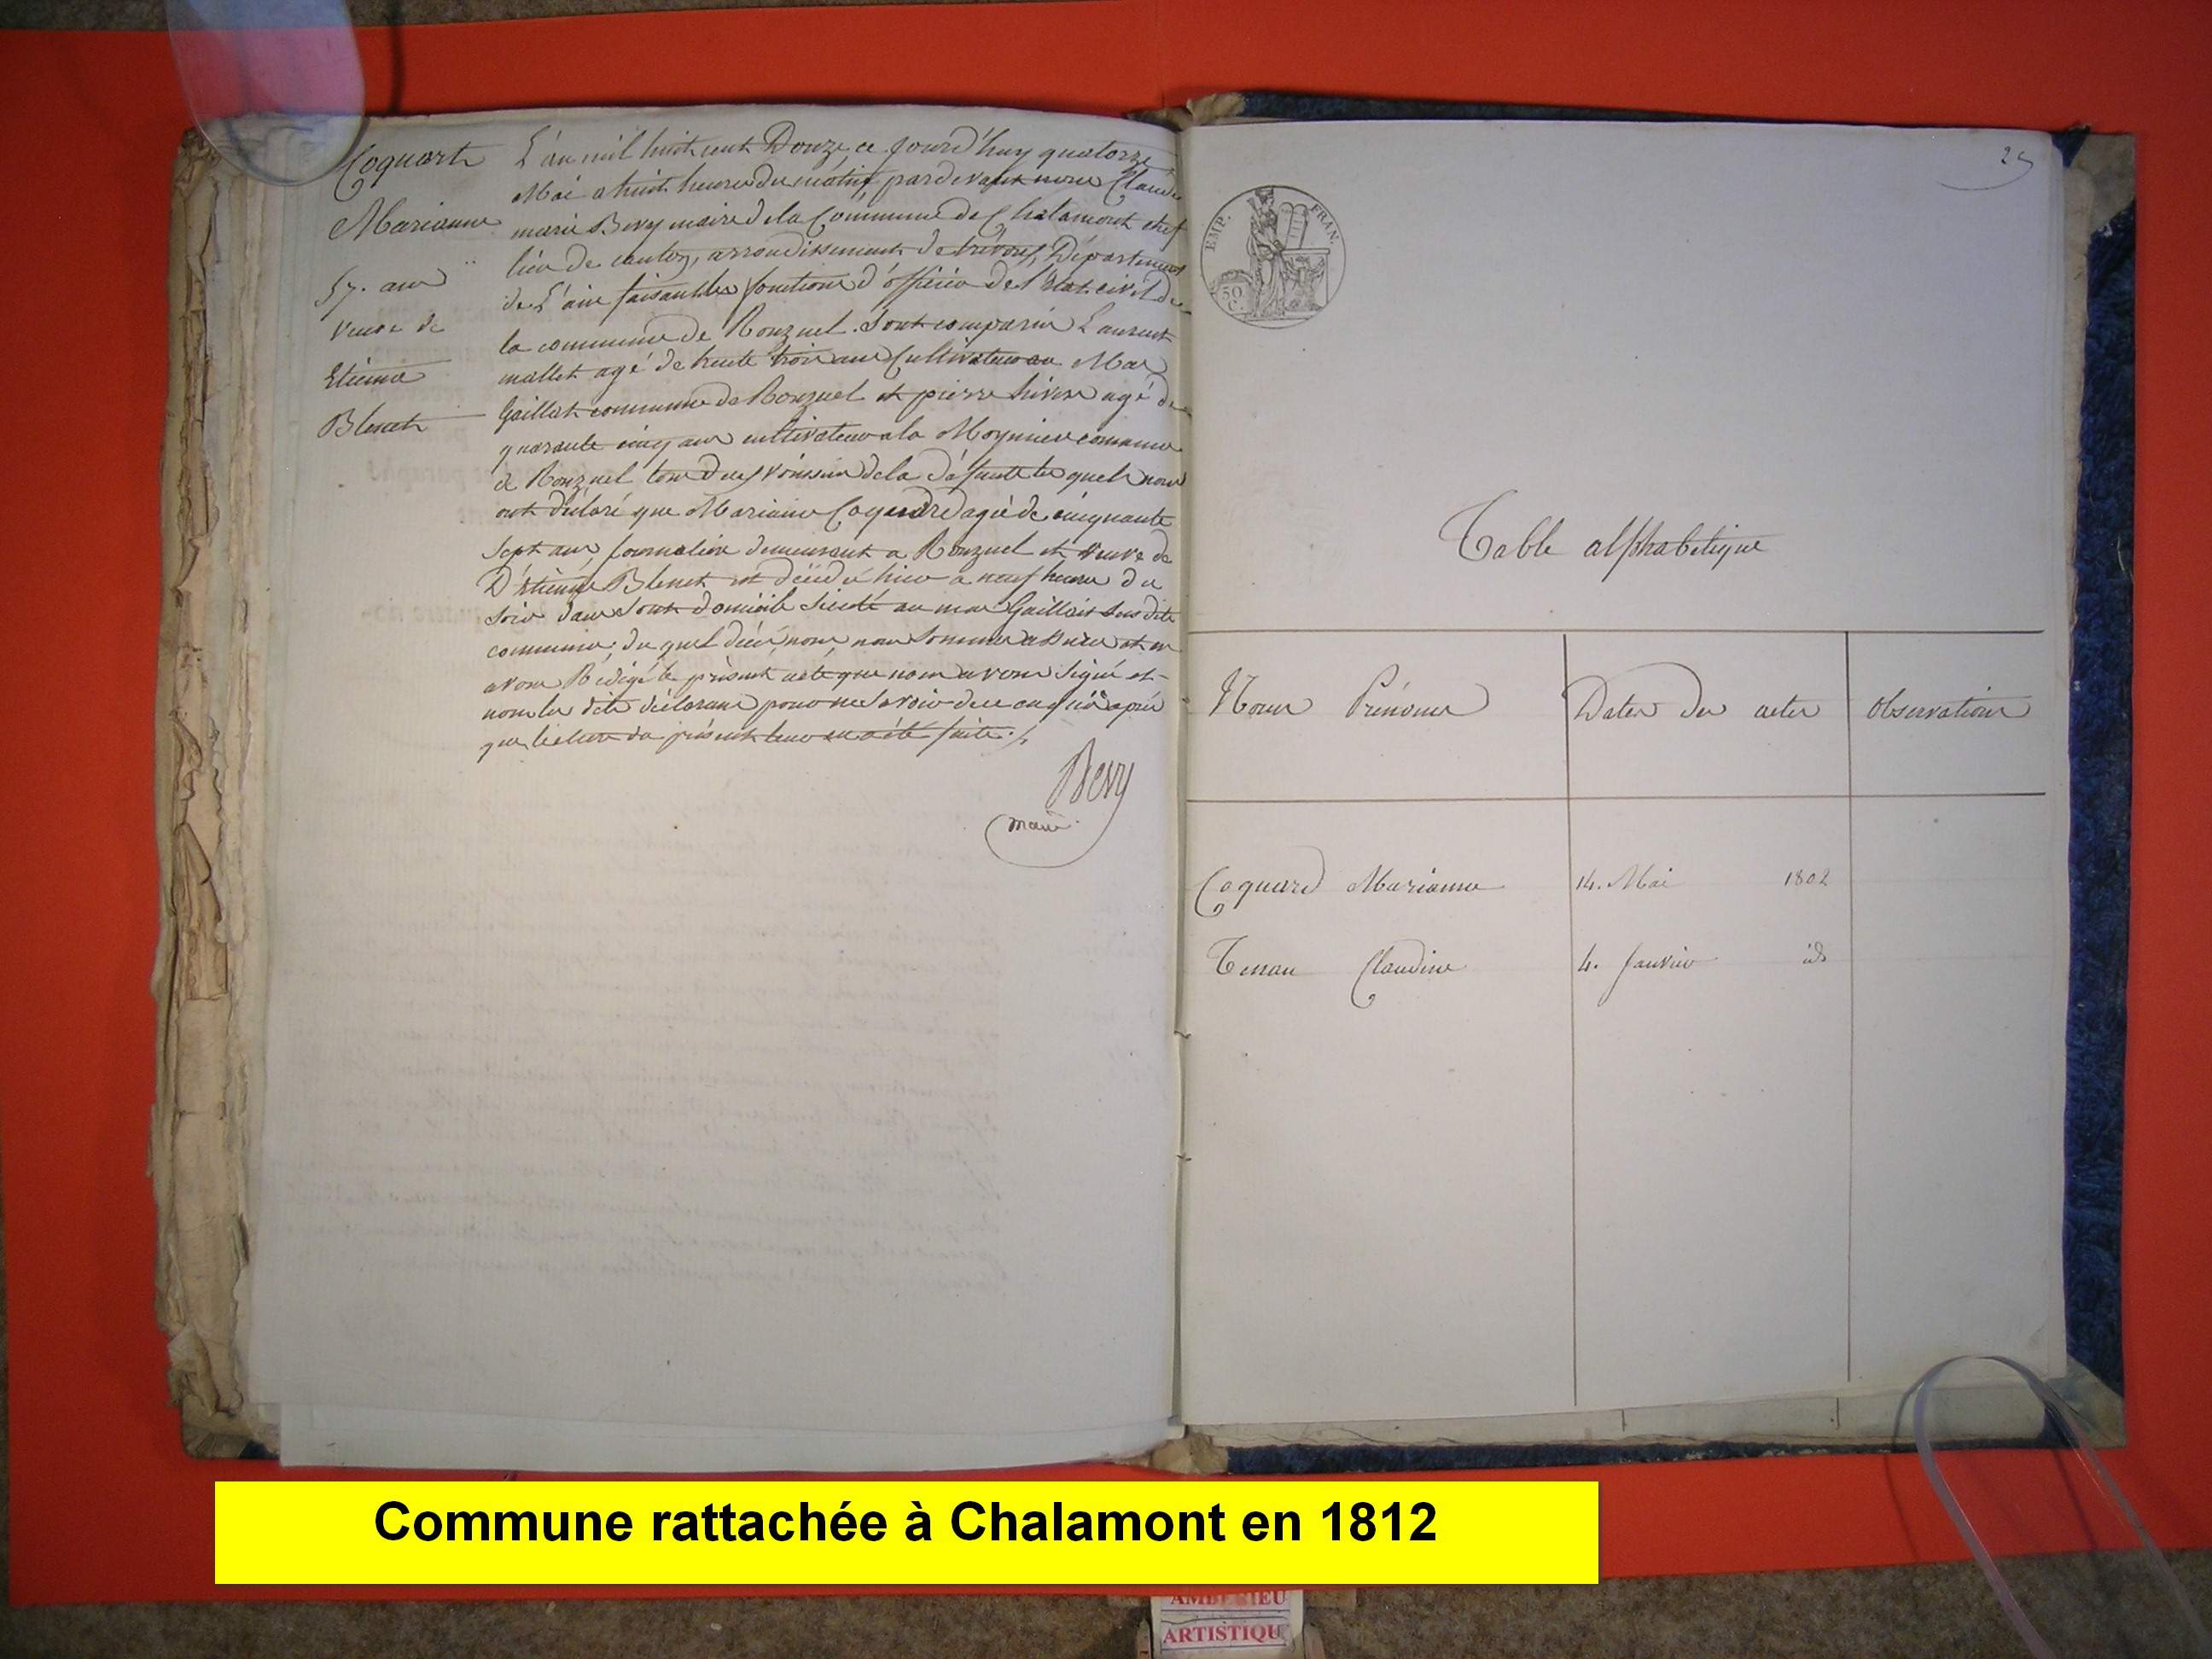 Coquart
Marianne
57. ans
veuve de
Etienne
Blenet
L'an mil huit cent Douze, ce jourd'huy quatorze
Mai a huit heures du matin, pardevant nous Claude
marie Bevy maire de la Commune de Chalamont chef
lieu de canton, arrondissement de trévoux, Département
de L'ain faisant les fonctions d'officier de l'état civil de
la commune de Ronzuel. Sont comparus Laurent
mallet agé de trente trois ans Cultivateur au Mas
Gaillat commune de Ronzuel et pierre agé de
quarante cinq ans cultivateur a la commune
de Ronzuel tous deux voissin de la défunte les quels nous
ont déclaré que Marianne Coquard agée de cinquante
Sept ans, journalière demeurant a Ronzuel et veuve de
D'étienne Blenet est décédé hier a neuf heures du
soir dans sont domicile situé au mas Gaillat susdite
commune; du quel décès, nous, nous sommes assurés et en
avons Rédigé le présent acte que nous avons signé et
non les dits déclarans pour ne savoir de ce enquis après
que lecture du présent leur en a été faite./.
Bevy
maire.
25
EMP. FRAN.
50
C.
Table alphabétique
Noms Prénoms
Dates des actes
Observations
Coquard Marianne 14. Mai 1802
Tenau Claudine 4. Janvier id
Commune rattachée à Chalamont en 1812
ARTISTIQU